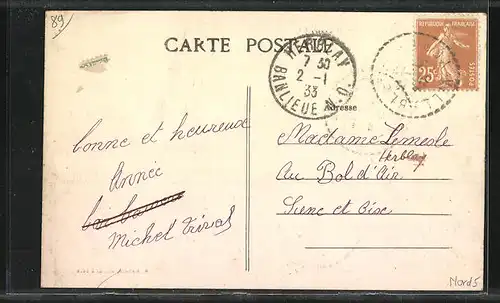 89
CARTE POSTALE
HERBLAY
7 30
2 - 1
33
BANLIEUE N.O.
REPUBLIQUE FRANÇAISE
25c
POSTES
Adresse
bonne et heureuse
Année
Michel
Madame Lemesle
Herblay
Au Bol d'Air
Seine et Oise
Nord5